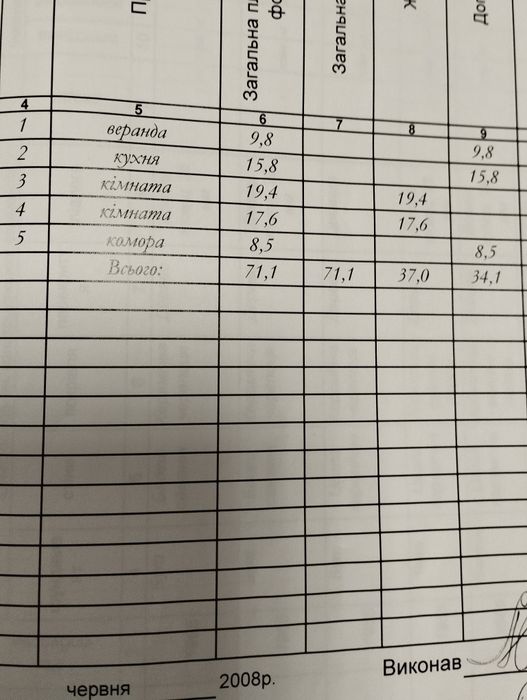 Загальна
Загальна
4 5 6 7 8 9
1 веранда 9,8 9,8
2 кухня 15,8 15,8
3 кімната 19,4 19,4
4 кімната 17,6 17,6
5 комора 8,5 8,5
Всього: 71,1 71,1 37,0 34,1
червня 2008р. Виконав